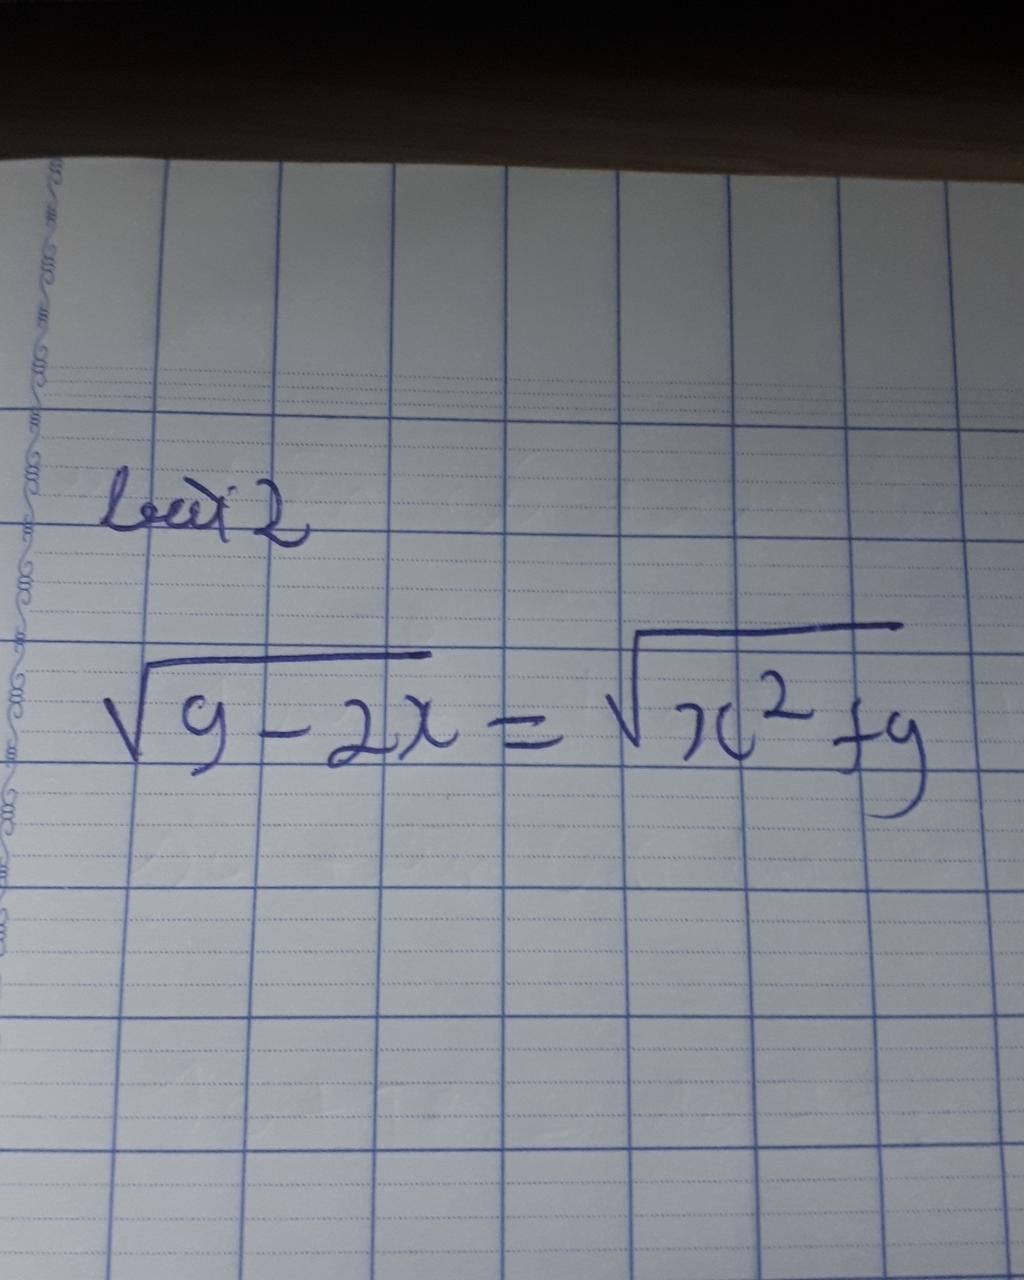 bài 2
√(9 - 2x) = √(x² + 9)